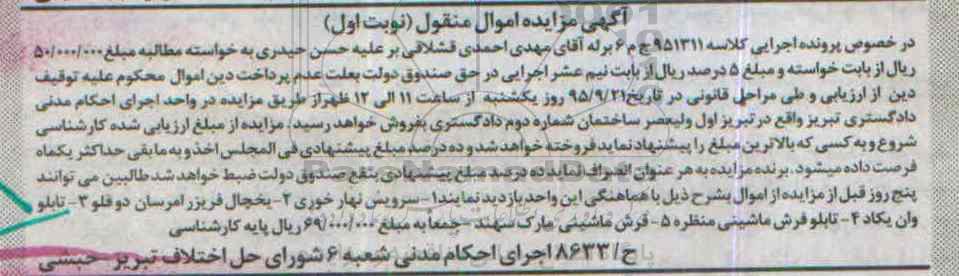 آگهی مزایده اموال منقول (نوبت اول)
در خصوص پرونده اجرایی کلاسه ۹۵۱۳۱۱ ج م ۶ برله آقای مهدی احمدی قشلاقی بر علیه حسن حیدری به خواسته مطالبه مبلغ ۵۰/۰۰۰/۰۰۰
ریال از بابت خواسته و مبلغ ۵ درصد ریال از بابت نیم عشر اجرایی در حق صندوق دولت بعلت عدم پرداخت دین اموال محکوم علیه توقیف
دین از ارزیابی و طی مراحل قانونی در تاریخ ۹۵/۹/۲۱ روز یکشنبه از ساعت ۱۱ الی ۱۲ ظهر از طریق مزایده در واحد اجرای احکام مدنی
دادگستری تبریز واقع در تبریز اول ولیعصر ساختمان شماره دوم دادگستری بفروش خواهد رسید، مزایده از مبلغ ارزیابی شده کارشناسی
شروع و به کسی که بالاترین مبلغ را پیشنهاد نماید فروخته خواهد شد و ده درصد مبلغ پیشنهادی فی المجلس اخذ و به مابقی حداکثر یکماه
فرصت داده میشود. برنده مزایده به هر عنوان انصراف نماید ده درصد مبلغ پیشنهادی بنفع صندوق دولت ضبط خواهد شد طالبین می توانند
پنج روز قبل از مزایده از اموال بشرح ذیل با هماهنگی این واحد بازدید نمایند ۱- سرویس نهار خوری ۲- یخچال فریزر امرسان دوقلو ۳- تابلو
وان یکاد ۴- تابلو فرش ماشینی منظره ۵- فرش ماشینی مارک سهند - جمعا به مبلغ ۶۹/۰۰۰/۰۰۰ ریال پایه کارشناسی
ح/۸۶۳۳ اجرای احکام مدنی شعبه ۶ شورای حل اختلاف تبریز - حبشی